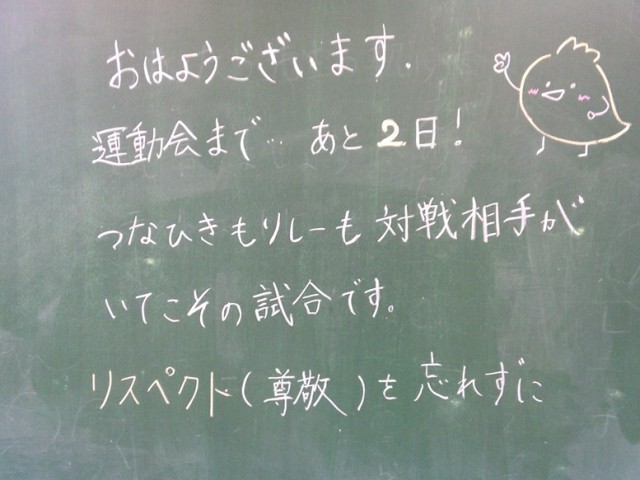 おはようございます.
運動会まで… あと2日!
つなひきもりレーも対戦相手が
いてこその試合です。
リスペクト(尊敬)を忘れずに